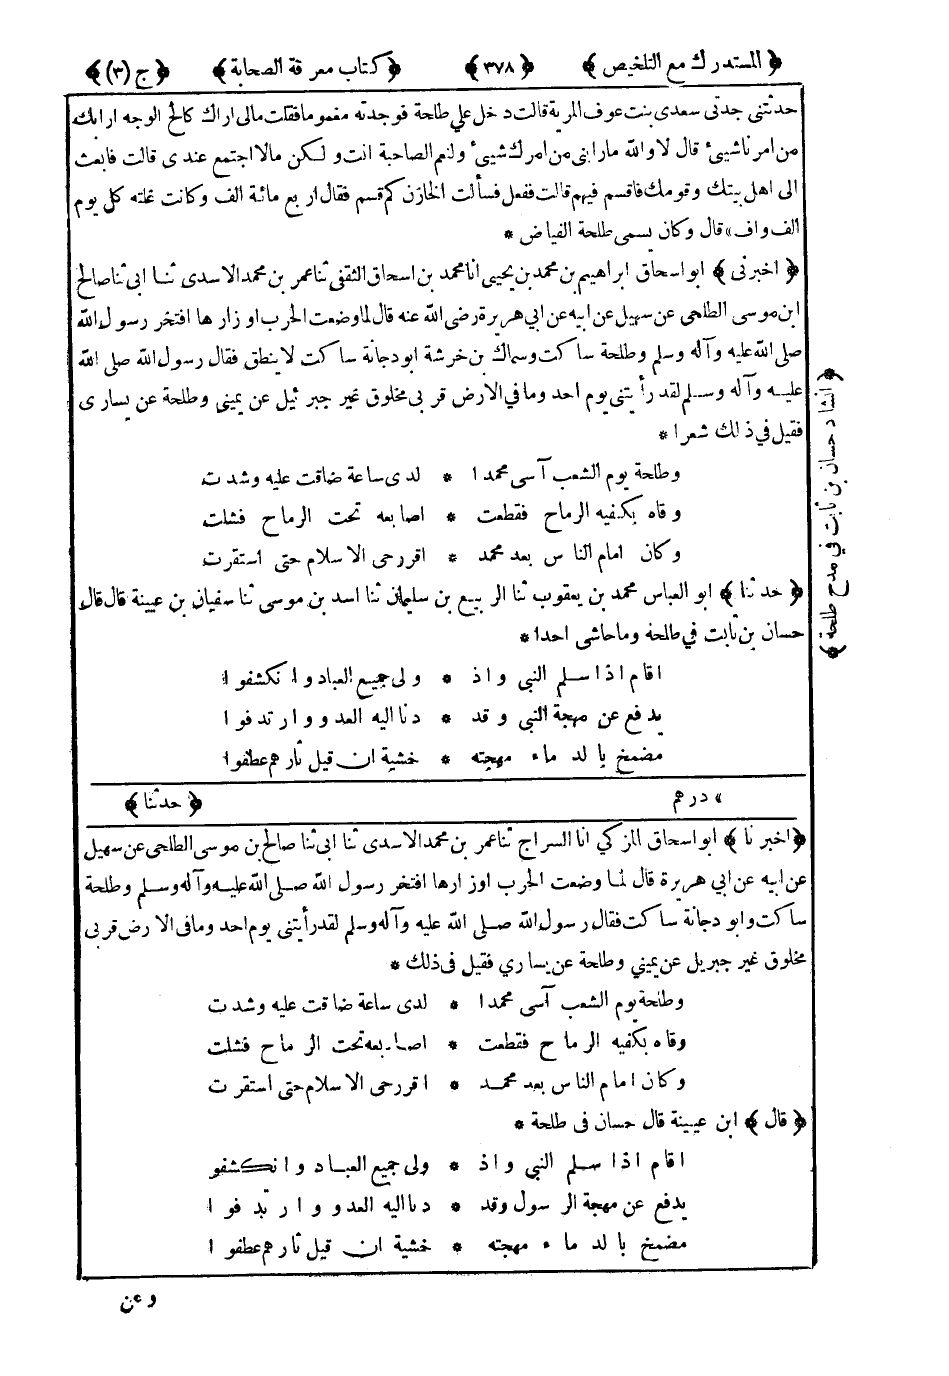 ﴿ المستدرك مع التلخيص ﴾ ﴿ ٣٧٨ ﴾ ﴿ كتاب معرفة الصحابة ﴾ ﴿ ج (٣) ﴾
حدثتنى جدتى سعدى بنت عوف المرية قالت دخل علي طلحة فوجدته مغموما فقلت مالى اراك كالح الوجه ارابك
من امرنا شيئ قال لا والله مارابنى من امرك شيئ ولنعم الصاحبة انت ولكن مالا اجتمع عندى قالت فابعث
الى اهل بيتك وقومك فاقسم فيهم قالت ففعل فسألت الخازن كم قسم فقال اربع مائة الف وكانت غلته كل يوم
الف واف» قال وكان يسمى طلحة الفياض *
﴿ اخبرنى ﴾ ابو اسحاق ابراهيم بن محمد بن يحيى انا محمد بن اسحاق الثقفى ثنا عمر بن محمد الاسدى ثنا ابى ثنا صالح
ابن موسى الطلحى عن سهيل عن ابيه عن ابي هريرة رضى الله عنه قال لما وضعت الحرب اوزارها افتخر رسول الله
صلى الله عليه وآله وسلم وطلحة ساكت وسماك بن خرشة ابو دجانة ساكت لا ينطق فقال رسول الله صلى الله
عليه وآله وسلم لقد رأيتنى يوم احد وما في الارض قربى مخلوق غير جبرئيل عن يمينى وطلحة عن يسارى
فقيل في ذلك شعرا *
وطلحة يوم الشعب آسى محمدا * لدى ساعة ضاقت عليه وشدت
وقاه بكفيه الرماح فقطعت * اصابعه تحت الرماح فشلت
وكان امام الناس بعد محمد * اقر رحى الاسلام حتى استقرت
﴿ حدثنا ﴾ ابو العباس محمد بن يعقوب ثنا الربيع بن سليمان ثنا اسد بن موسى ثنا سفيان بن عيينة قال قال
حسان بن ثابت في طلحة وما حاشى احدا *
اقام اذا سلم النبى واذ * ولى جميع العباد وانكشفوا
يدفع عن مهجة النبى وقد * دنا اليه العدو وارتدفوا
مضمخ بالدماء مهجته * خشية ان قيل ثارهم عطفوا
﴿ انشاد حسان بن ثابت في مدح طلحة ﴾
» درهم ﴿ حدثنا ﴾
﴿ اخبرنا ﴾ ابو اسحاق المزكي انا السراج ثنا عمر بن محمد الاسدى ثنا ابى ثنا صالح بن موسى الطلحى عن سهيل
عن ابيه عن ابي هريرة قال لما وضعت الحرب اوزارها افتخر رسول الله صلى الله عليه وآله وسلم وطلحة
ساكت وابو دجانة ساكت فقال رسول الله صلى الله عليه وآله وسلم لقد رأيتنى يوم احد وما فى الارض قربى
مخلوق غير جبريل عن يمينى وطلحة عن يساري فقيل فى ذلك *
وطلحة يوم الشعب آسى محمدا * لدى ساعة ضاقت عليه وشدت
وقاه بكفيه الرماح فقطعت * اصابعه تحت الرماح فشلت
وكان امام الناس بعد محمد * اقر رحى الاسلام حتى استقرت
﴿ قال ﴾ ابن عيينة قال حسان فى طلحة *
اقام اذا سلم النبي واذ * ولى جميع العباد وانكشفو
يدفع عن مهجة الرسول وقد * دنا اليه العدو وارتدفوا
مضمخ بالدماء مهجته * خشية ان قيل ثارهم عطفوا
وعن